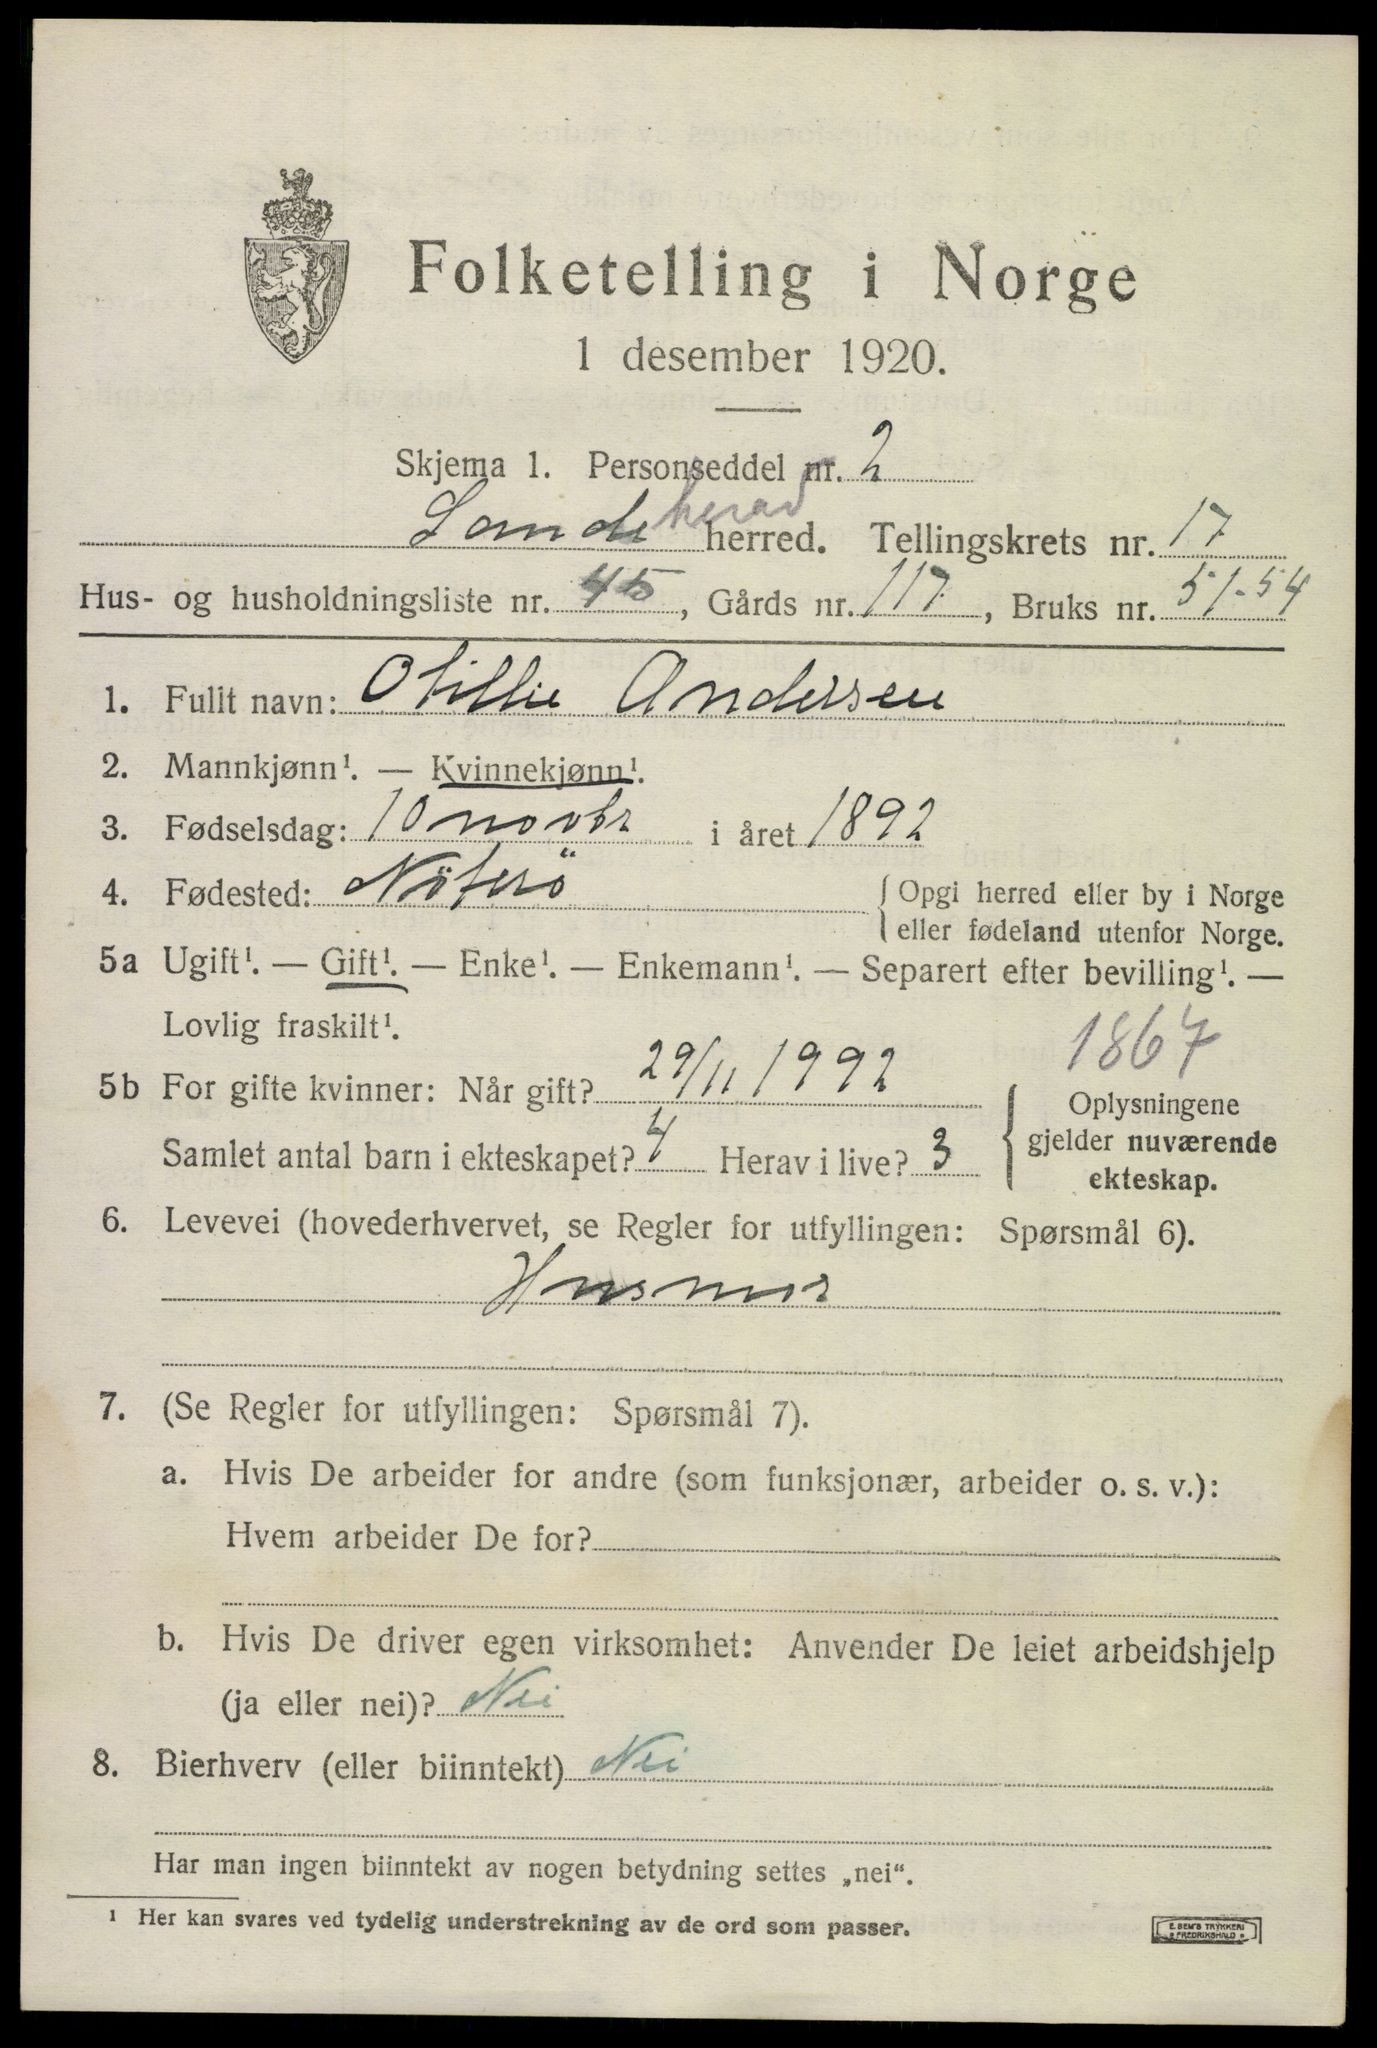 Folketelling i Norge
1 desember 1920.
Skjema 1. Personseddel nr. 2
Sande herad herred. Tellingskrets nr. 17
Hus- og husholdningsliste nr. 45, Gårds nr. 117, Bruks nr. 51-54
1. Fullt navn: Otillie Andersen
2. Mannkjønn¹. — Kvinnekjønn¹.
3. Fødselsdag: 10 novbr i året 1892
4. Fødested: Nöterö { Opgi herred eller by i Norge
eller fødeland utenfor Norge.
5a Ugift¹. — Gift¹. — Enke¹. — Enkemann¹. — Separert efter bevilling¹. —
Lovlig fraskilt¹.
1867
5b For gifte kvinner: Når gift? 29/11 1992
Samlet antal barn i ekteskapet? 4 Herav i live? 3
{ Oplysningene
gjelder nuværende
ekteskap.
6. Levevei (hovederhvervet, se Regler for utfyllingen: Spørsmål 6).
Husmor
7. (Se Regler for utfyllingen: Spørsmål 7).
a. Hvis De arbeider for andre (som funksjonær, arbeider o. s. v.):
Hvem arbeider De for?
b. Hvis De driver egen virksomhet: Anvender De leiet arbeidshjelp
(ja eller nei)? Nei
8. Bierhverv (eller biinntekt) Nei
Har man ingen biinntekt av nogen betydning settes „nei“.
¹ Her kan svares ved tydelig understrekning av de ord som passer.
E. SEM'S TRYKKERI
FREDRIKSHALD